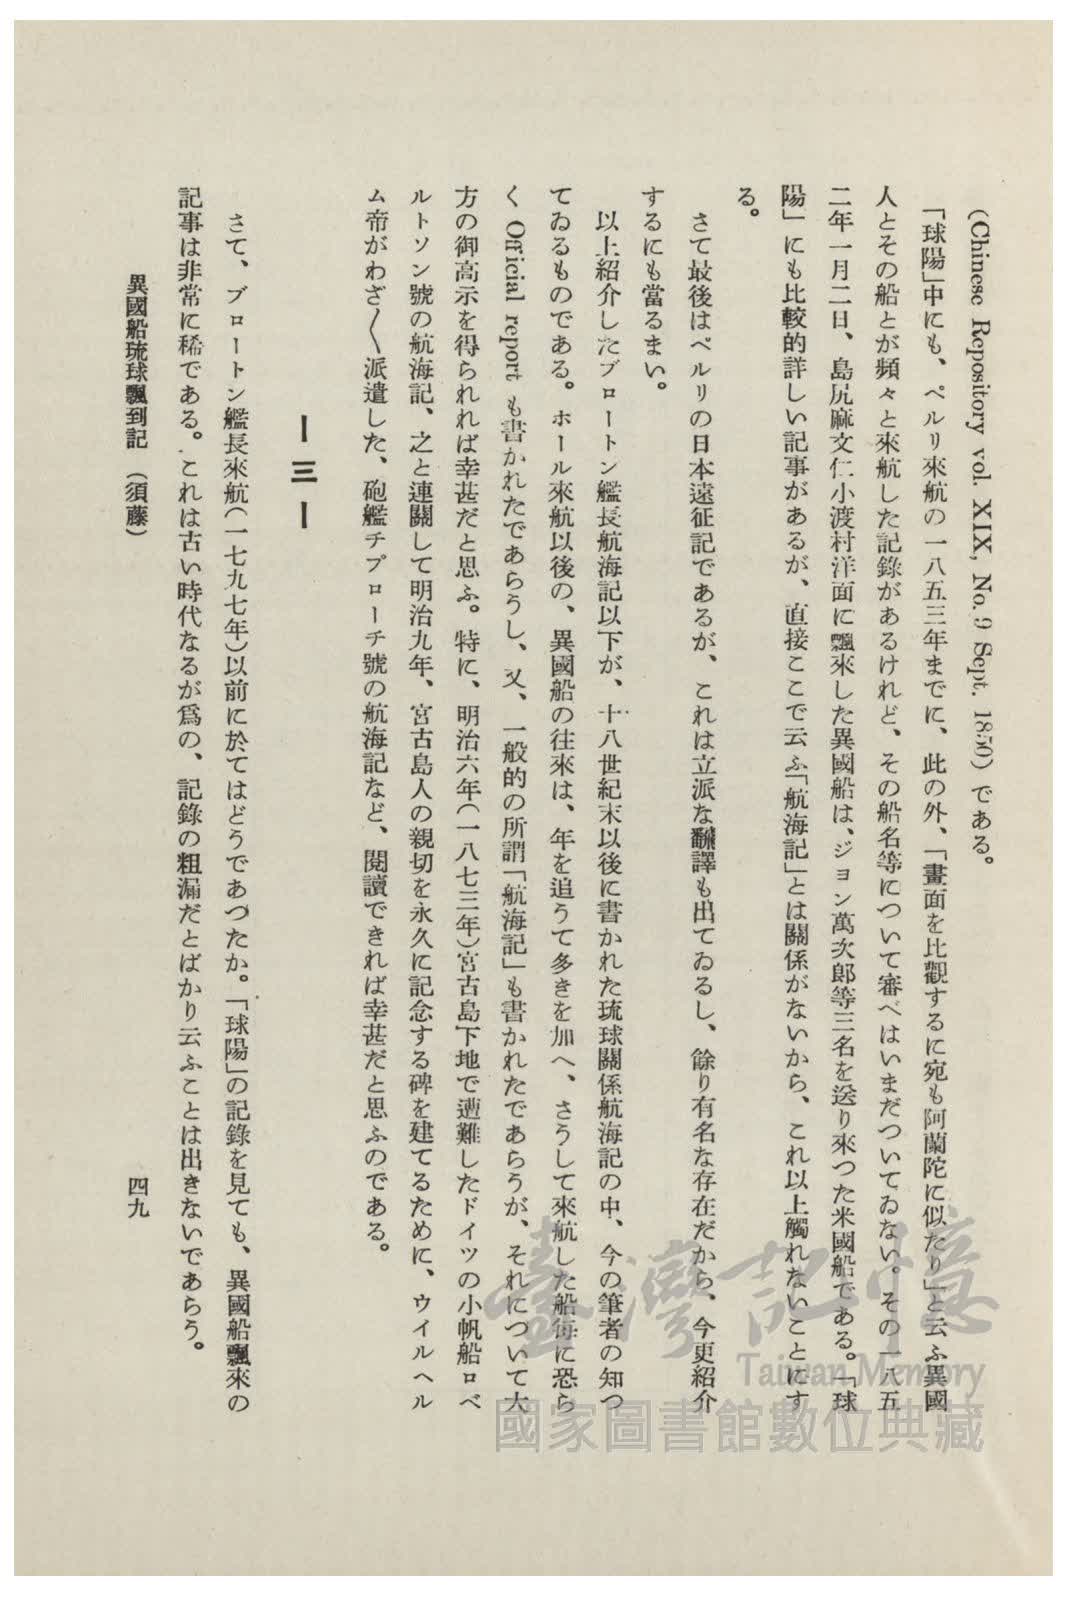 (Chinese Repository vol. XIX, No. 9 Sept. 1850) である。
「球陽」中にも、ペルリ來航の一八五三年までに、此の外、「畫面を比觀するに宛も阿蘭陀に似たり」と云ふ異國
人とその船とが頻々と來航した記錄があるけれど、その船名等について審べはいまだついてゐない。その一八五
二年一月二日、島尻麻文仁小渡村洋面に飄來した異國船は、ジョン萬次郎等三名を送り來つた米國船である。「球
陽」にも比較的詳しい記事があるが、直接ここで云ふ「航海記」とは關係がないから、これ以上觸れないことにす
る。
さて最後はペルリの日本遠征記であるが、これは立派な飜譯も出てゐるし、餘り有名な存在だから、今更紹介
するにも當るまい。
以上紹介したブロートン艦長航海記以下が、十八世紀末以後に書かれた琉球關係航海記の中、今の筆者の知つ
てゐるものである。ホール來航以後の、異國船の往來は、年を追うて多きを加へ、さうして來航した船每に恐ら
く Official report も書かれたであらうし、又、一般的の所謂「航海記」も書かれたであらうが、それについて大
方の御高示を得られれば幸甚だと思ふ。特に、明治六年(一八七三年)宮古島下地で遭難したドイツの小帆船ロベ
ルトソン號の航海記、之と連關して明治九年、宮古島人の親切を永久に記念する碑を建てるために、ウイルヘル
ム帝がわざ〱派遣した、砲艦チプローチ號の航海記など、閱讀できれば幸甚だと思ふのである。
ー三ー
さて、ブロートン艦長來航(一七九七年)以前に於てはどうであつたか。「球陽」の記錄を見ても、異國船飄來の
記事は非常に稀である。これは古い時代なるが爲の、記錄の粗漏だとばかり云ふことは出きないであらう。
異國船琉球飄到記 (須藤)
四九
臺灣記憶
Taiwan Memory
國家圖書館數位典藏